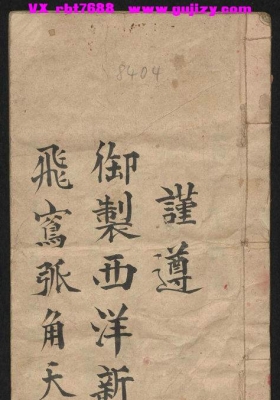 VX rht7688 www.gujizy.com
8404
謹遵
御製西洋新
飛鸞弧角天